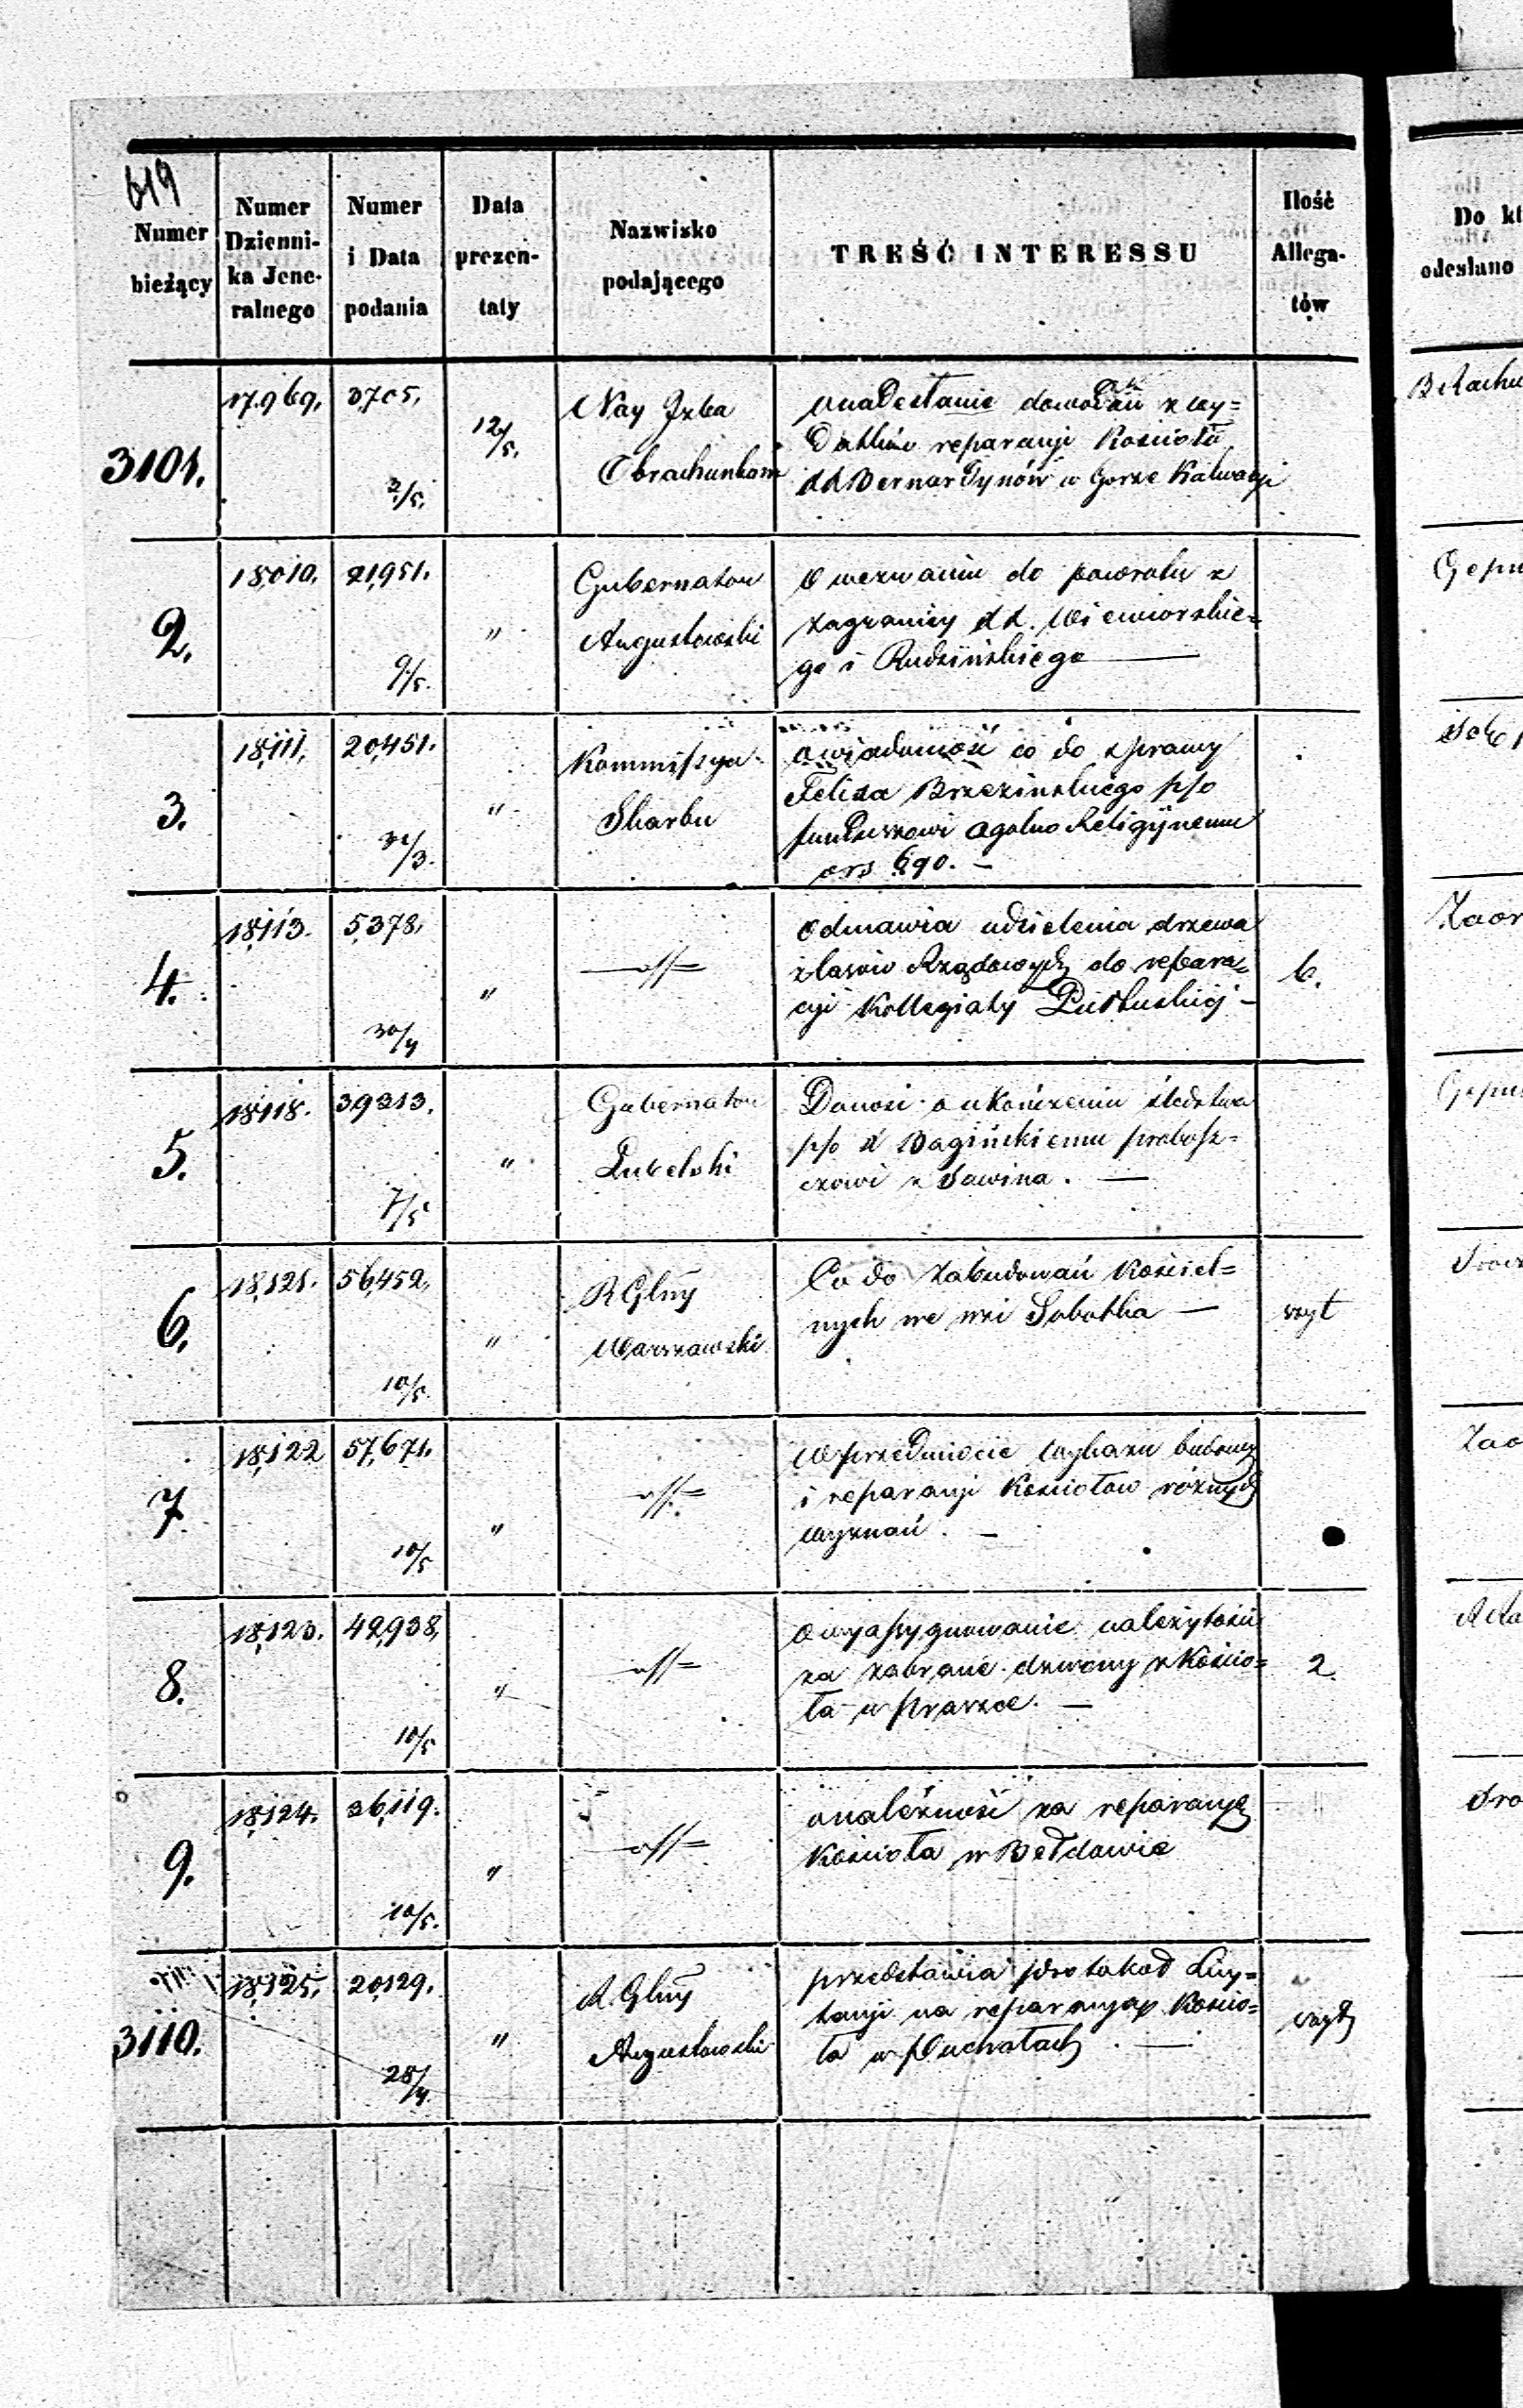 619
Numer bieżący
Numer Dziennika Jeneralnego
Numer i Data podania
Data prezentaty
Nazwisko podającego
TREŚĆ INTERESSU
Ilość Allegatów
Do
odesłano
3101. 17,969. 3705. 3/5. 12/5. Nay Izba
Obrachunkowa
o nadesłanie dowodów z wy=
datków reparacyi Kościoła
XX Bernardynów w Gorze Kalwaryi
2. 18,010. 21,951. 9/5. " Gubernator
Augustowski
O wezwaniu do powrotu z
zagranicy XX. Wiewiorskie=
go i Rudzińskiego —
3. 18,111. 20,451. 31/3. " Kommissya
Skarbu
o wiadomość co do sprawy
Felixa Brzezinskiego p/o
funduszowi ogolno Religijnemu
ors 690. —
4. 18,113. 5,378. 30/4 " —//=
Odmawia udzielenia drzewa
z lasów Rządowych do repara=
cyi Kollegiaty Pułtuskiej — 6.
5. 18,118. 39313. 7/5 " Gubernator
Lubelski
Donosi o ukończeniu śledztwa
p/o X Bagińskiemu probosz=
czowi z Sawina. —
6. 18,121. 56,452. 10/5. " R Glny
Warszawski
Co do zabudowań Kościel=
nych we wsi Sobotka — szyt
7. 18,122 57,671. 10/5 " —//=
W przedmiocie wykazu budowy
i reparacyi Kościołow różnych
wyznań. —
8. 18,123. 42,938. 10/5 " —//=
o wyassygnowanie należytości
za zabrane dzwony z Kościo=
ła w Praszce. — 2.
9. 18,124. 36,119. 10/5. " —//=
o należność za reparacyą
Kościoła w Bełdowie
3110. 18,125. 20,129. 28/4. " R. Glny
Augustowski
przedstawia protokoł Licy=
tacyi na reparacyą Kościo=
ła w Puchałach. — szyt